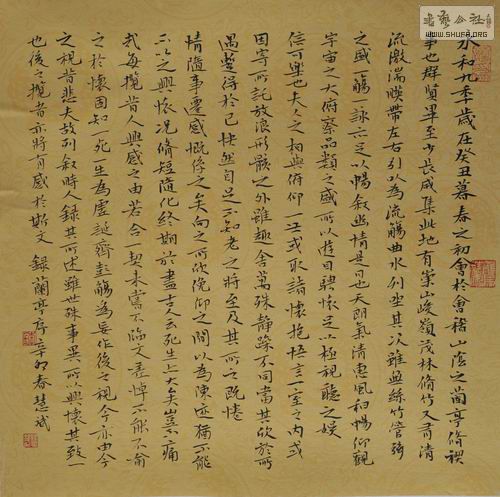 书艺公社
WWW.SHUFA.ORG
永和九年歲在癸丑暮春之初會於會稽山陰之蘭亭脩禊
事也群賢畢至少長咸集此地有崇山峻嶺茂林脩竹又有清
流激湍暎帶左右引以為流觴曲水列坐其次雖無絲竹管弦
之盛一觴一詠亦足以暢叙幽情是日也天朗氣清惠風和暢仰觀
宇宙之大俯察品類之盛所以遊目騁懷足以極視聽之娛
信可樂也夫人之相與俯仰一世或取諸懷抱悟言一室之内或
因寄所託放浪形骸之外雖趣舍萬殊静躁不同當其欣於所
遇蹔得於己快然自足不知老之將至及其所之既惓
情隨事遷感慨係之矣向之所欣俛仰之間以為陳迹猶不能
不以之興懷況脩短隨化終期於盡古人云死生亦大矣豈不痛
哉每攬昔人興感之由若合一契未嘗不臨文嗟悼不能不喻
之於懷固知一死生為虛誕齊彭殤為妄作後之視今亦由今
之視昔悲夫故列叙時人錄其所述雖世殊事異所以興懷其致一
也後之攬者亦將有感於斯文 錄蘭亭序辛卯春慧斌